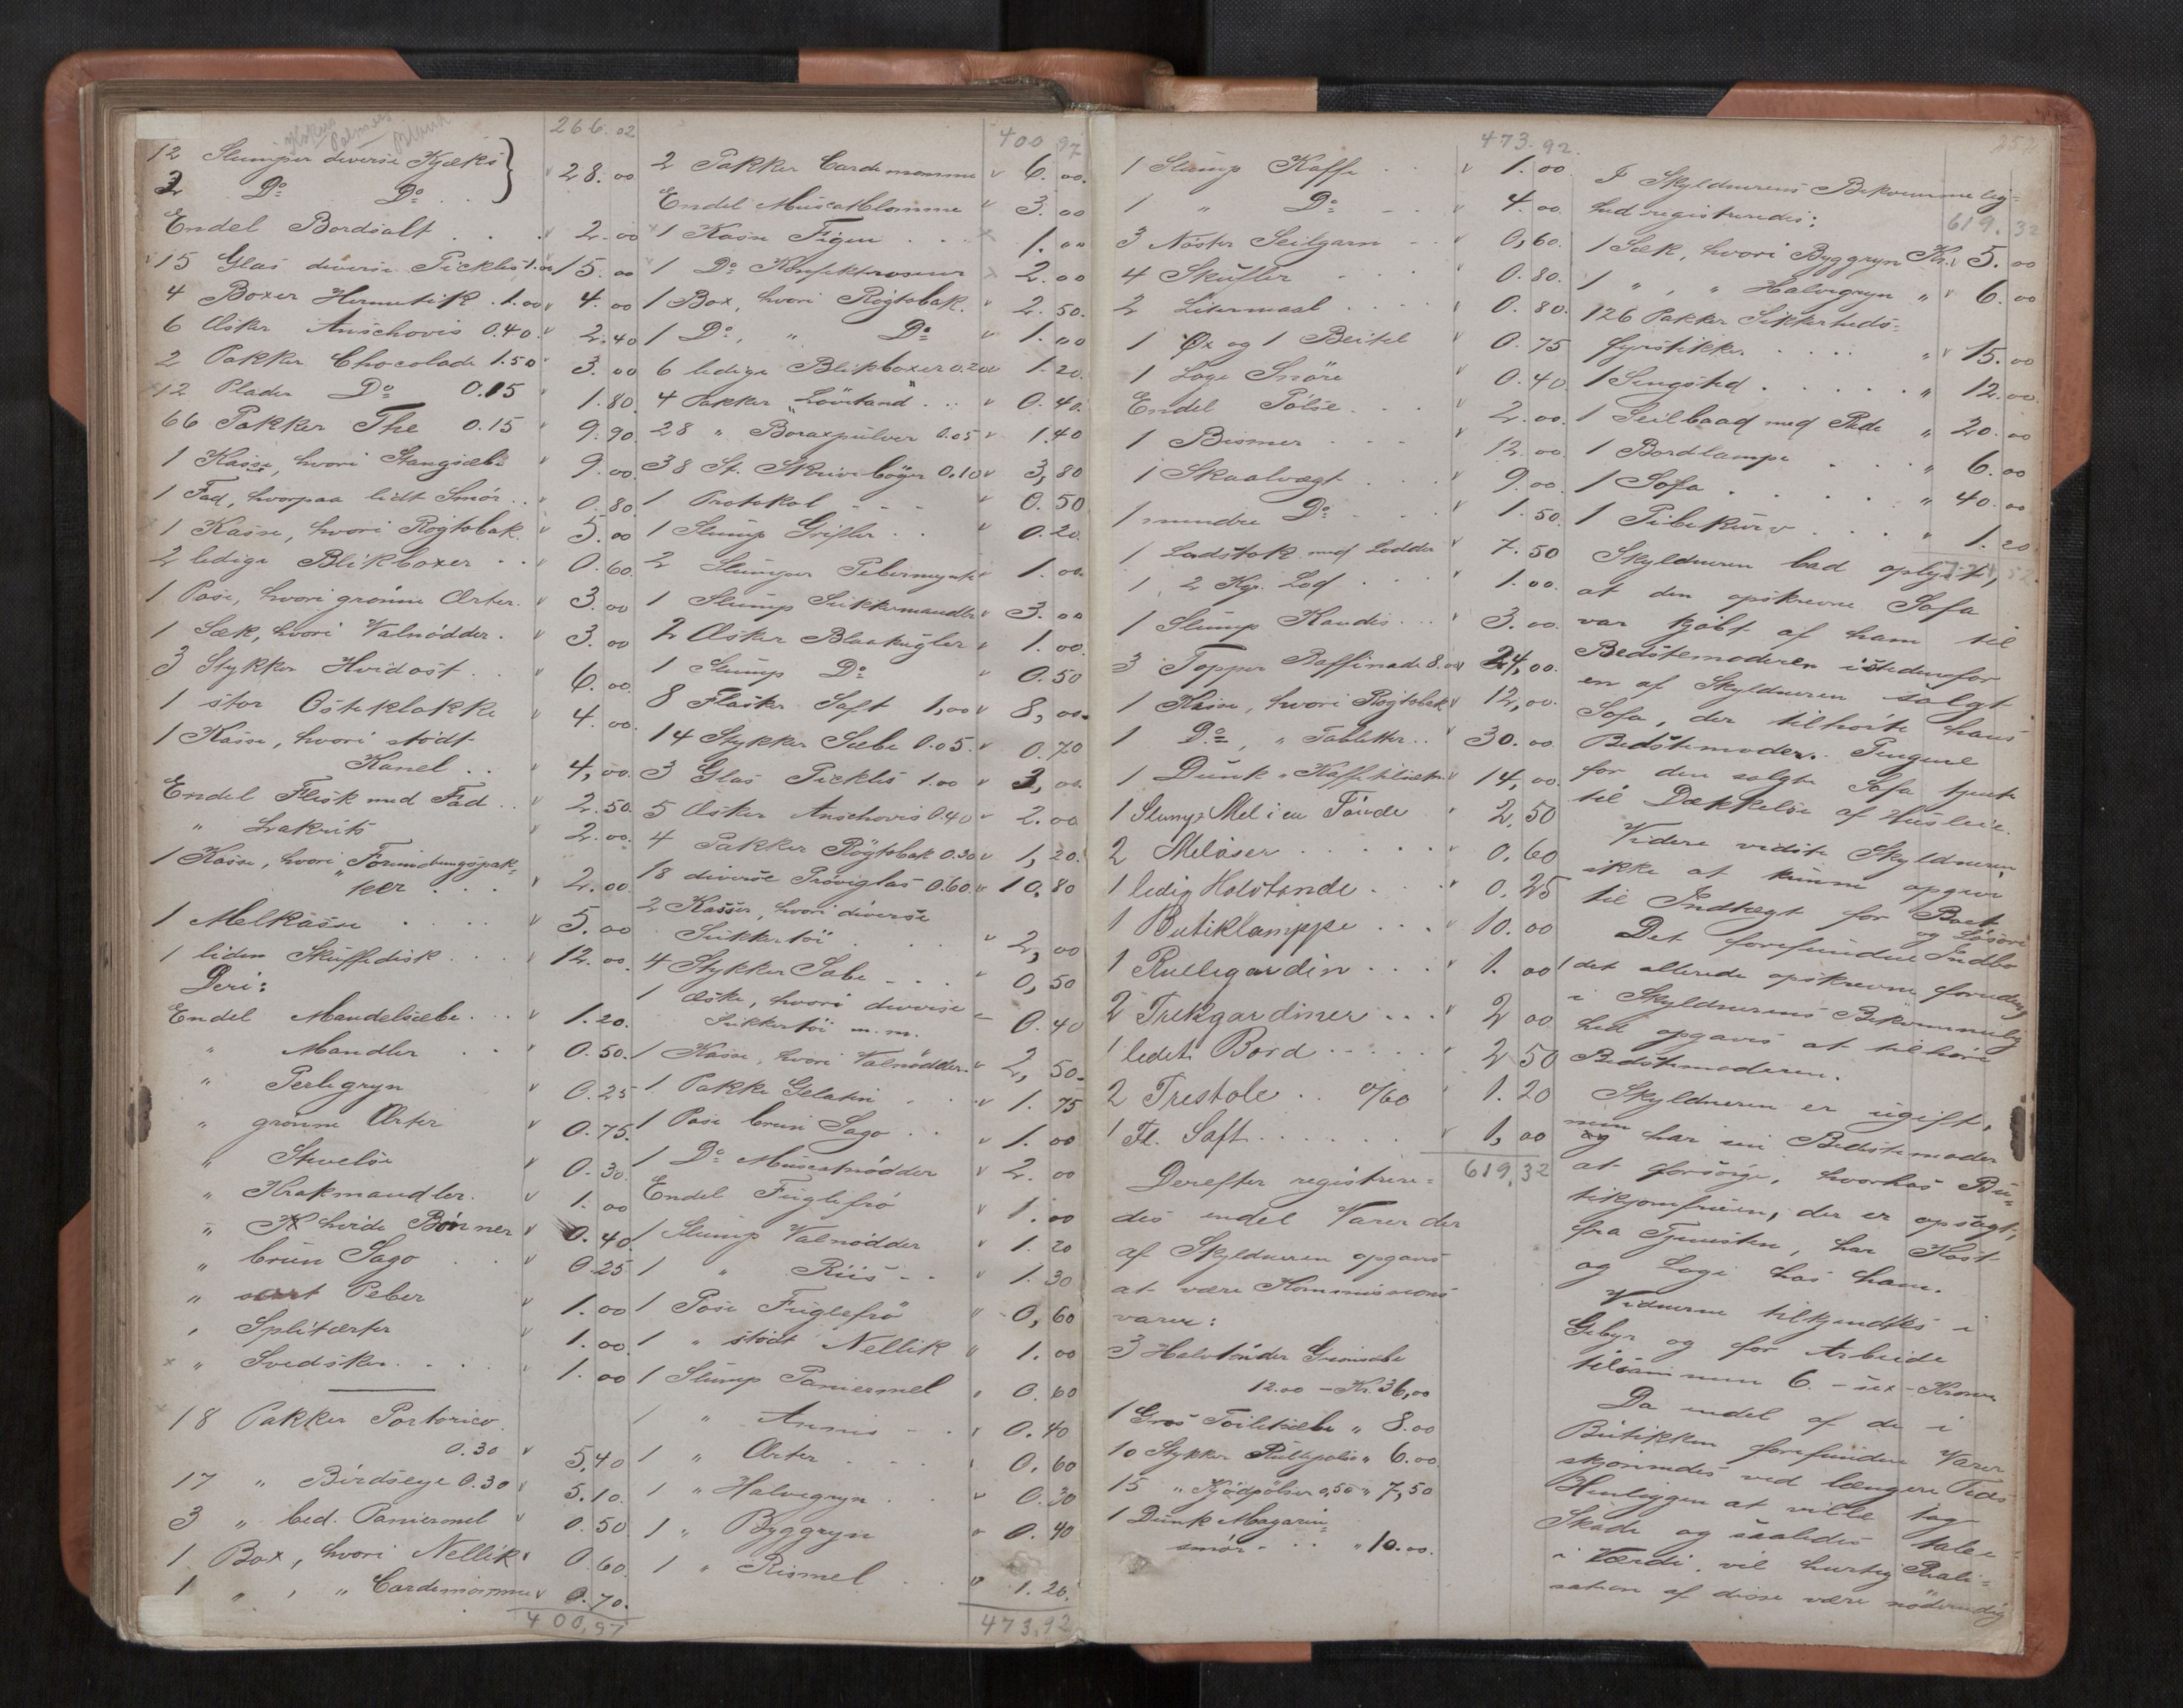 Kokus
Palmers
Blank
266.02
12 Slumper diverse Kjæks }
2 Do Do . . } 28.00
Endel Bordsalt . . . . 2.00
15 Glas diverse Pickles 1.00 15.00
4 Boxer Hermetik . 1.00 4.00
6 Æsker Anschovis 0.40 2.40
2 Pakker Chocolade 1.50 3.00
12 Plader Do 0.15 1.80
66 Pakker The 0.15 9.90
1 Kasse, hvori Stangsæbe 9.00
1 Fad, hvorpaa lidt Smør . . 0.80
1 Kasse, hvori Røgtobak 5.00
2 ledige Blikboxer . . 0.60
1 Pose, hvori grønne Ærter. 3.00
1 Sæk, hvori Valnødder . 3.00
3 Stykker Hvidost . . 6.00
1 stor Osteklokke 4.00
1 Kasse, hvori stødt
Kanel . . 4,00
Endel Flesk med Fad . . 2.50
" Lakrits 2.00
1 Kasse, hvori Forbindingspak-
ker . . . 2.00
1 Melkasse . . . . 5.00
1 liden Skuffedisk . . . 12.00
Deri:
Endel Mandelsæbe . . 1.20
" Mandler . . 0.50
" Perlegryn 0.25
" grønne Ærter 0.75
" Stivelse 0.30
" Krakmandler. 1.00
" hvide Bønner 0.40
" brun Sago . . 0.25
" sort Peber 1.00
" Splitærter 1.00
" Svedsker . . . 1.00
18 Pakker Portorico
0.30 5,40
17 " Birdseye 0.30 5.10
3 " bed. Paniermel 0.50
1 Box, hvori Nellik 0.60
1 " , " Cardemomme 0.70
400,97
400 97
2 Pakker Cardemomme 6.00
Endel Muscatblomme 3.00
1 Kasse Figen . . . 1.00
1 Do Konfektrosiner 2.00
1 Box, hvori Røgtobak. 2.50
1 Do, " Do 1.00
6 ledige Blikboxer 0.20 1.20
4 Pakker "Løvetand" . . 0.40
28 " Boraxpulver 0.05 1.40
38 St. Skrivebøger 0.10 3,80
1 Protokol - - - 0.50
1 Slump Grifler . . 0.20
2 Slumper Pebermynte 1.00
1 Slump Sukkermandler 3.00
2 Æsker Blaakugler 1.00
1 Slump Do 0.50
8 Flasker Saft 1,00 8,00
14 Stykker Sæbe 0.05 0.70
3 Glas Pickles 1.00 3,00
5 Æsker Anschovis 0.40 2.00
4 Pakker Røgtobak 0.30 1,20
18 diverse Prøveglas 0.60 10,80
2 Kasser, hvori diverse
Sukkertøi . . . 2,00
4 Stykker Sæbe - - - 0,50
1 Æske, hvori diverse
Sukkertøi m. m. 0.40
1 Kasse, hvori Valnødder 2,50
1 Pakke Gelatin . . 1.75
1 Pose brun Sago . . 1.00
1 Do Muscatnødder 2.00
Endel Fuglefrø 1.00
1 Slump Valnødder 1.20
1 " Riis - - 1.30
1 Pose Fuglefrø 0,60
1 " stødt Nellik 1.00
1 Slump Paniermel 0.60
1 " Annis - - 0.40
1 " Ærter . . . . 0.60
1 " Halvegryn . . 0.30
1 " Byggryn 0.40
1 " Rismel . . 1.20
473,92
473.92
1 Slump Kaffe . . 1.00
1 " Do - - 4.00
3 Nøster Seilgarn - - 0,60
4 Skufler . . . . 0.80
2 Litermaal . . . . 0.80
1 Øx og 1 Beitel 0.75
1 Loge Snøre 0.40
Endel Pølse . . . 2.00
1 Bismer - - - 12.00
1 Skaalvægt . . . 9.00
1 mindre Do - - - 1.50
1 Lodstok med Lodder 7.50
1, 2 Kgr. Lod . . . 1.00
1 Slump Kandis . . . 3.00
3 Topper Raffinade 8.00 24,00
1 Kasse, hvori Røgtobak 12,00
1 Do, " Tabletter . . 30.00
1 Dunk " Kaffetilsætn. 14,00
1 Slump Mel i en Tønde 2,50
2 Meløser . . . . . 0,60
1 ledig Halvtønde . . . 0.25
1 Butiklamppe . . . 10.00
1 Rullegardin . . . . 1.00
2 Trekgardiner . . . 2 00
1 ledet Bord . . . . . 2 50
2 Trestole . . o/60 1.20
1 Fl. Saft . . . . . . 1,00
619,32
Derefter registrere-
des endel Varer der
af Skyldneren opgaves
at være Kommissions
varer:
3 Halvtønder Grønsæbe
12.00 - Kr. 36,00
1 Gros Toiletsæbe " 8.00
10 Stykker Rullepølse " 6.00
15 " Kjødpølser 0,50 " 7,50
1 Dunk Magarin-
smør - . . " 10.00.
252
I Skyldnerens Bekvemmelig-
hed registreredes:
619.32
1 Sæk, hvori Byggryn Kr. 5.00
1 " , " Halvegryn " 6.00
126 Pakker Sikkerheds-
fyrstikker . . . . " 15.00
1 Sengsted . . . . . " 12.00
1 Seilbaad med Rede " 20.00
1 Bordlampe . . . " 6.00
1 Sofa . . . . . " 40.00
1 Pibekurv . . . " 1.20
Skyldneren bad oplyst,
at den opskrevne Sofa
var kjøbt af ham til
Bedstemoderen istedenfor
en af Skyldneren solgt
Sofa, der tilhørte hans
Bedstemoder. Pengene
for den solgte Sofa tjente
til Dækkelse af Husleie.
Videre vidste Skyldneren
ikke at kunne opgive
til Indtægt for Boet.
Det forefundne Indbo
og Løsøre
det allerede opskrevne foruden
i Skyldnerens Bekvemmelig
hed opgaves at tilhøre
Bedstemoderen.
Skyldneren er ugift,
men har sin Bedstemoder
at forsørge, hvorhos Bu-
tikjomfruen, der er opsagt,
fra Tjenesten, har Kost
og Logi hos ham.
Vidnerne tilkjendtes i
Gebyr og for Arbeide
tilsammen 6. - sex - Kroner
Da endel af de i
Butikken forefundne Varer
skjønnedes ved længere Tids
Henliggen at ville tage
Skade og saaledes tabe
i Værdi, vil hurtig Reali-
sation af disse være nødvendig